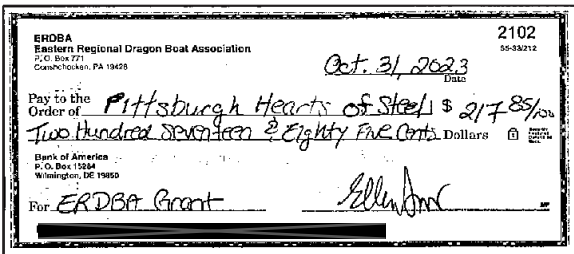 ERDBA 2102
Eastern Regional Dragon Boat Association 55-33/212
P.O. Box 771
Conshohocken, PA 19428
Oct. 31, 2023
Date
Pay to the Order of Pittsburgh Hearts of Steel $ 217 85/100
Two Hundred Seventeen & Eighty Five Cents Dollars
Bank of America
P.O. Box 15284
Wilmington, DE 19850
For ERDBA Grant
MP